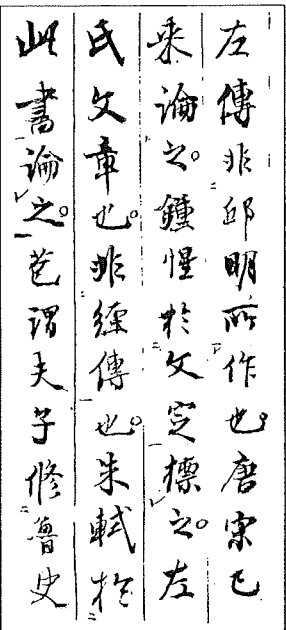 左傳非邱明所作也。唐宋已
来論之。鍾惺於文定標之。左
氏文章也。非經傳也。朱軾於
此書論之。苞謂夫子修魯史